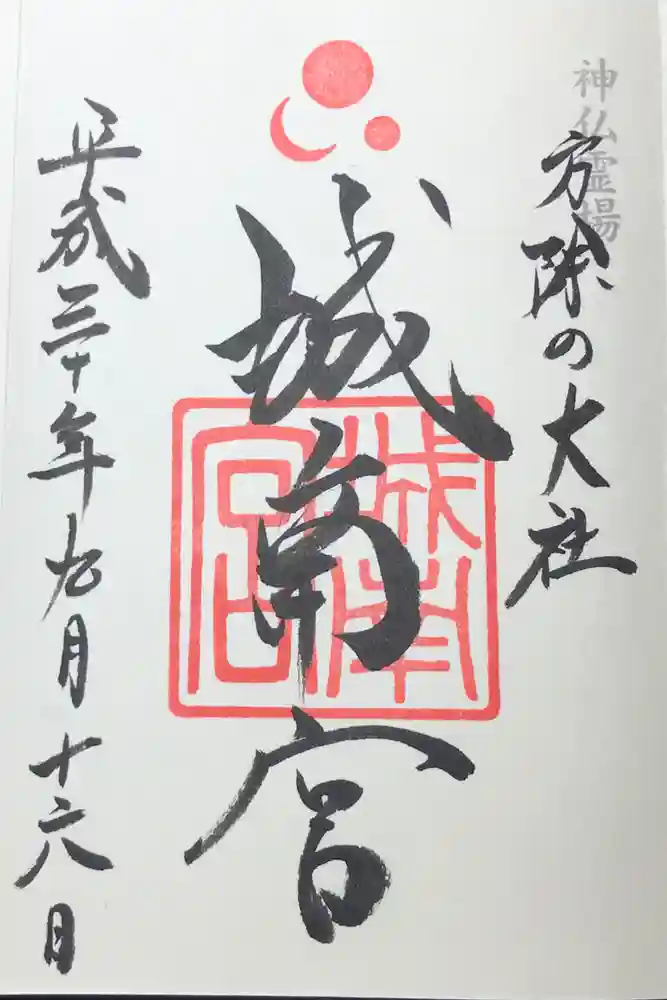 神仏霊場
方除の大社
城南宮
城南宮
平成三十年九月十六日